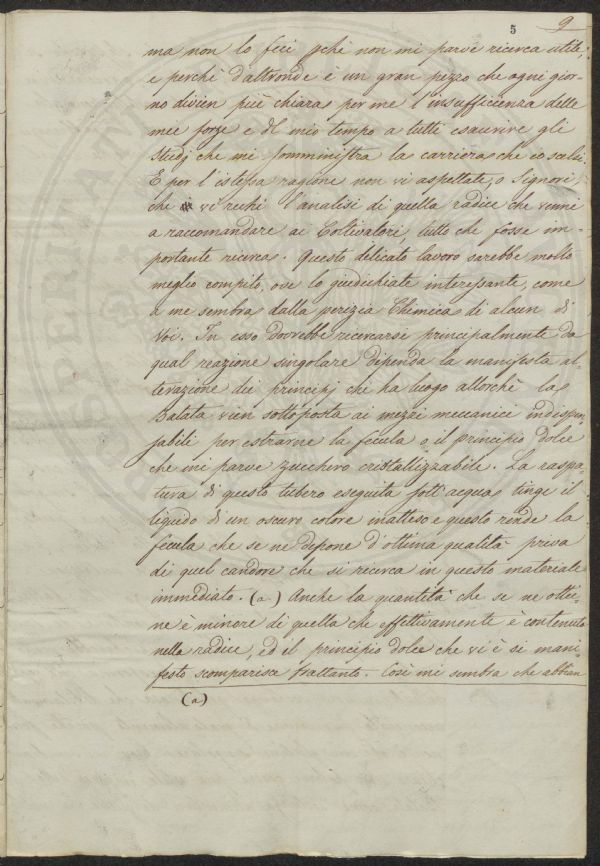 5 9
ma non lo feci pchè non mi parve ricerca utile;
e perchè d'altronde è un gran pezzo che ogni gior-
no divien più chiara per me l'insufficienza delle
mie forze e del mio tempo a tutti esaurire gli
studj che mi somministra la carriera che io scelsi.
E per l'istessa ragione non vi aspettate, o Signori,
che vi rechi l'analisi di quella radice che venni
a raccomandare ai Coltivatori, tutto che fosse im-
portante ricerca. Questo delicato lavoro sarebbe molto
meglio compito, ove lo giudichiate interessante, come
a me sembra dalla perizia Chimica di alcun di
Voi. In esso dovrebbe ricercarsi principalmente da
qual reazione singolare dipenda la manifesta al-
terazione dei principj che ha luogo allorchè la
Batata vien sottoposta ai mezzi meccanici indispen-
sabili per estrarne la fecula o il principio dolce
che mi parve zucchero cristallizzabile. La raspa-
tura di questo tubero eseguita sott'acqua tinge il
liquido di un oscuro colore inatteso e questo rende la
fecula che se ne depone d'ottima qualità priva
di quel candore che si ricerca in questo materiale
immediato. (a) Anche la quantità che se ne ottie-
ne è minore di quella che effettivamente è contenuta
nella radice, ed il principio dolce che vi è si mani-
festo scomparisce frattanto. Così mi sembra che abban
(a)
PROSPERITATI